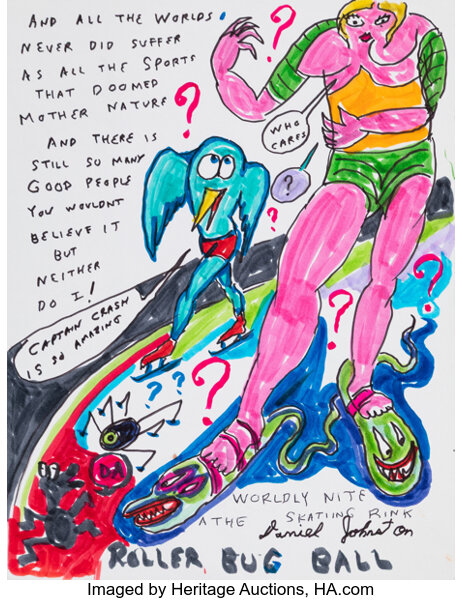 AND ALL THE WORLDS
NEVER DID SUFFER
AS ALL THE SPORTS
THAT DOOMED
MOTHER NATURE
AND THERE IS
STILL SO MANY
GOOD PEOPLE
YOU WOULDNT
BELIEVE IT
BUT
NEITHER
DO I!
WHO
CARES
?
?
?
?
?
?
?
?
?
?
CAPTAIN CRASH
IS SO AMAZING
DA
WORLDLY NITE
A THE SKATING RINK
Daniel Johnston
ROLLER BUG BALL
Imaged by Heritage Auctions, HA.com